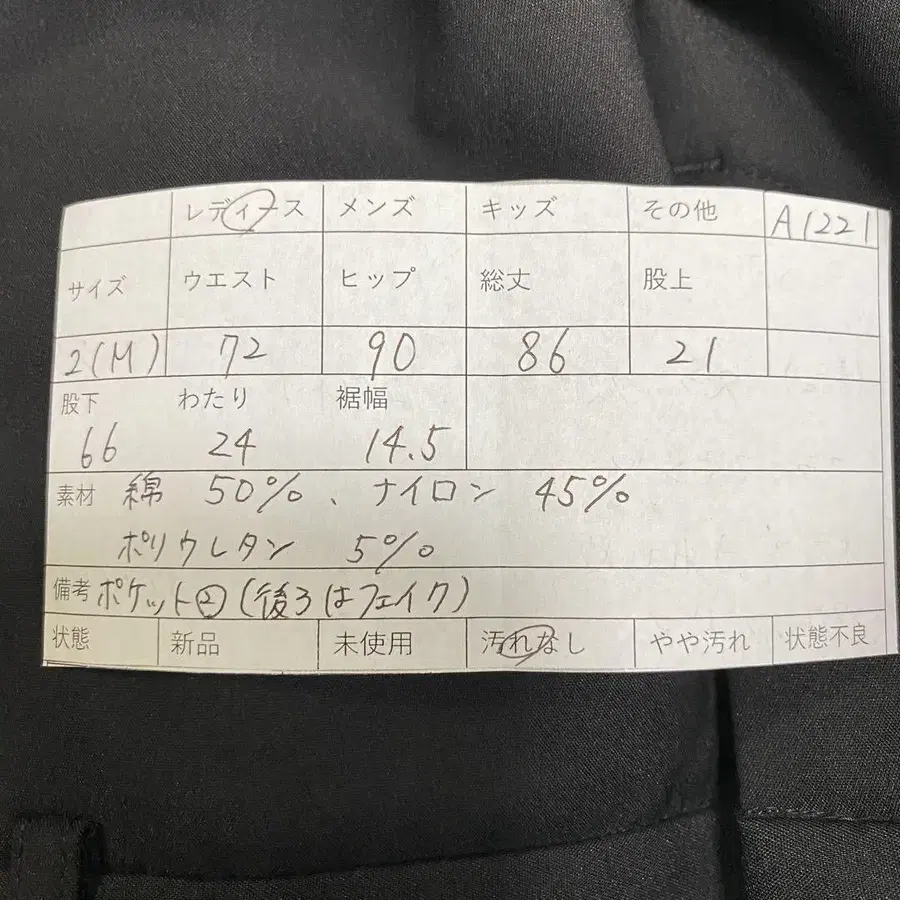 レディース メンズ キッズ その他 A1221
サイズ ウエスト ヒップ 総丈 股上
2(M) 72 90 86 21
股下 わたり 裾幅
66 24 14.5
素材 綿 50%、ナイロン 45%
ポリウレタン 5%
備考 ポケット②(後ろはフェイク)
状態 新品 未使用 汚れなし やや汚れ 状態不良